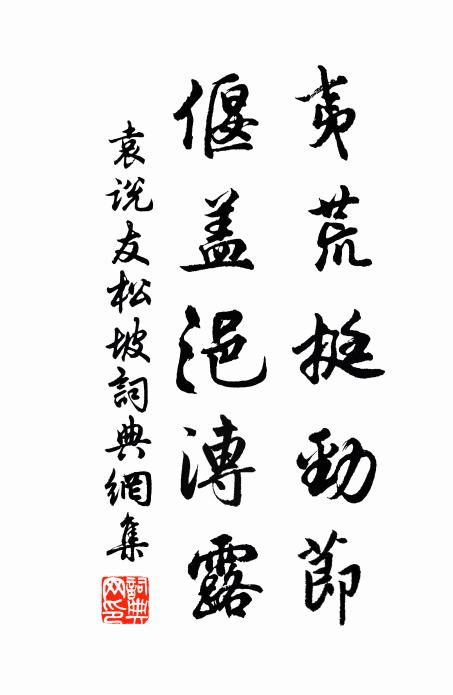 夷荒挺勁節
偃盖浥漙露
袁说友松坡詞典網集
詞典網印